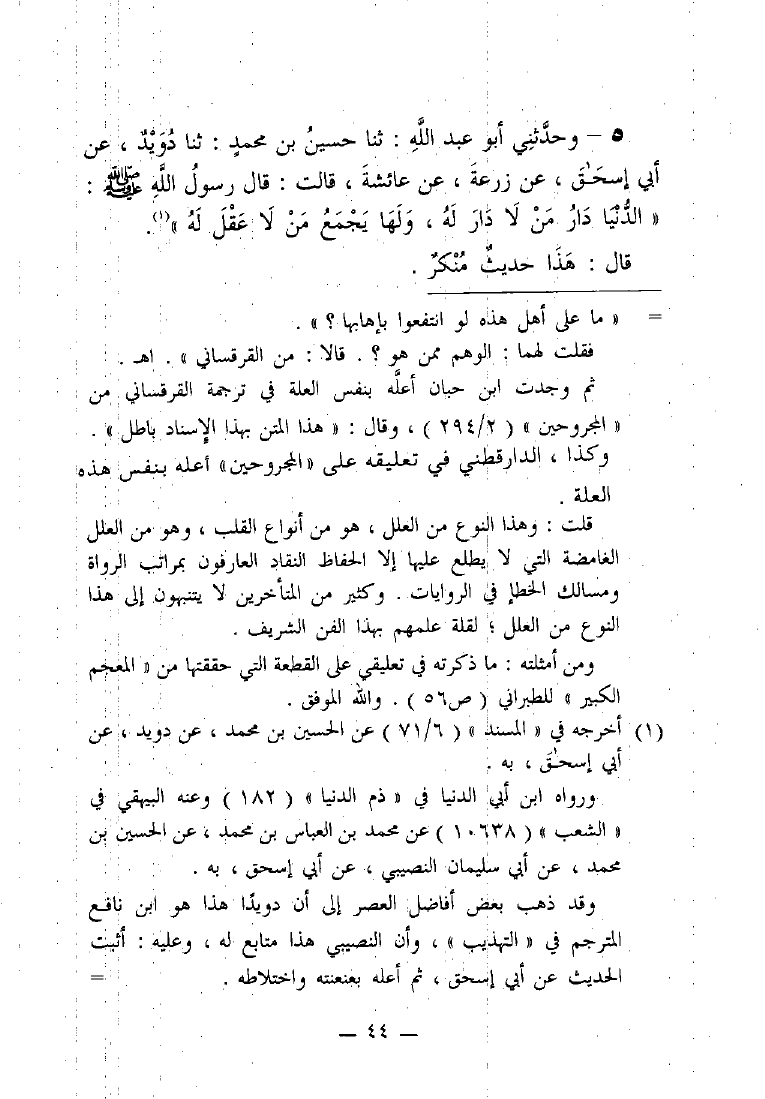 ٥ – وحدَّثنِي أبو عبد اللَّهِ : ثنا حسينُ بن محمدٍ : ثنا دُوَيْدٌ ، عن
أبي إسحَـٰقَ ، عن زرعةَ ، عن عائشةَ ، قالت : قال رسولُ اللَّهِ ﷺ :
« الدُّنْيَا دَارُ مَنْ لَا دَارَ لَهُ ، وَلَهَا يَجْمَعُ مَنْ لَا عَقْلَ لَهُ »(١).
قال : هَذَا حديثٌ مُنْكَرٌ .
= « ما على أهل هذه لو انتفعوا بإهابها ؟ » .
فقلت لهما : الوهم ممن هو ؟ . قالا : من القرقساني » . اهـ .
ثم وجدت ابن حبان أعلَّه بنفس العلة في ترجمة القرقساني من
« المجروحين » ( ٢٩٤/٢ ) ، وقال : « هذا المتن بهذا الإسناد باطل » .
وكذا ، الدارقطني في تعليقه على «المجروحين» أعله بنفس هذه
العلة .
قلت : وهذا النوع من العلل ، هو من أنواع القلب ، وهو من العلل
الغامضة التي لا يطلع عليها إلا الحفاظ النقاد العارفون بمراتب الرواة
ومسالك الخطإ في الروايات . وكثير من المتأخرين لا يتنبهون إلى هذا
النوع من العلل ؛ لقلة علمهم بهذا الفن الشريف .
ومن أمثلته : ما ذكرته في تعليقي على القطعة التي حققتها من « المعجم
الكبير » للطبراني ( ص٥٦ ) . والله الموفق .
(١) أخرجه في « المسند » ( ٧١/٦ ) عن الحسين بن محمد ، عن دويد ، عن
أبي إسحـٰقَ ، به .
ورواه ابن أبي الدنيا في « ذم الدنيا » ( ١٨٢ ) وعنه البيهقي في
« الشعب » ( ١٠٦٣٨ ) عن محمد بن العباس بن محمد ، عن الحسين بن
محمد ، عن أبي سليمان النصيبي ، عن أبي إسحق ، به .
وقد ذهب بعض أفاضل العصر إلى أن دويدًا هذا هو ابن نافع
المترجم في « التهذيب » ، وأن النصيبي هذا متابع له ، وعليه : أثبت
الحديث عن أبي إسحق ، ثم أعله بعنعنته واختلاطه . =
— ٤٤ —